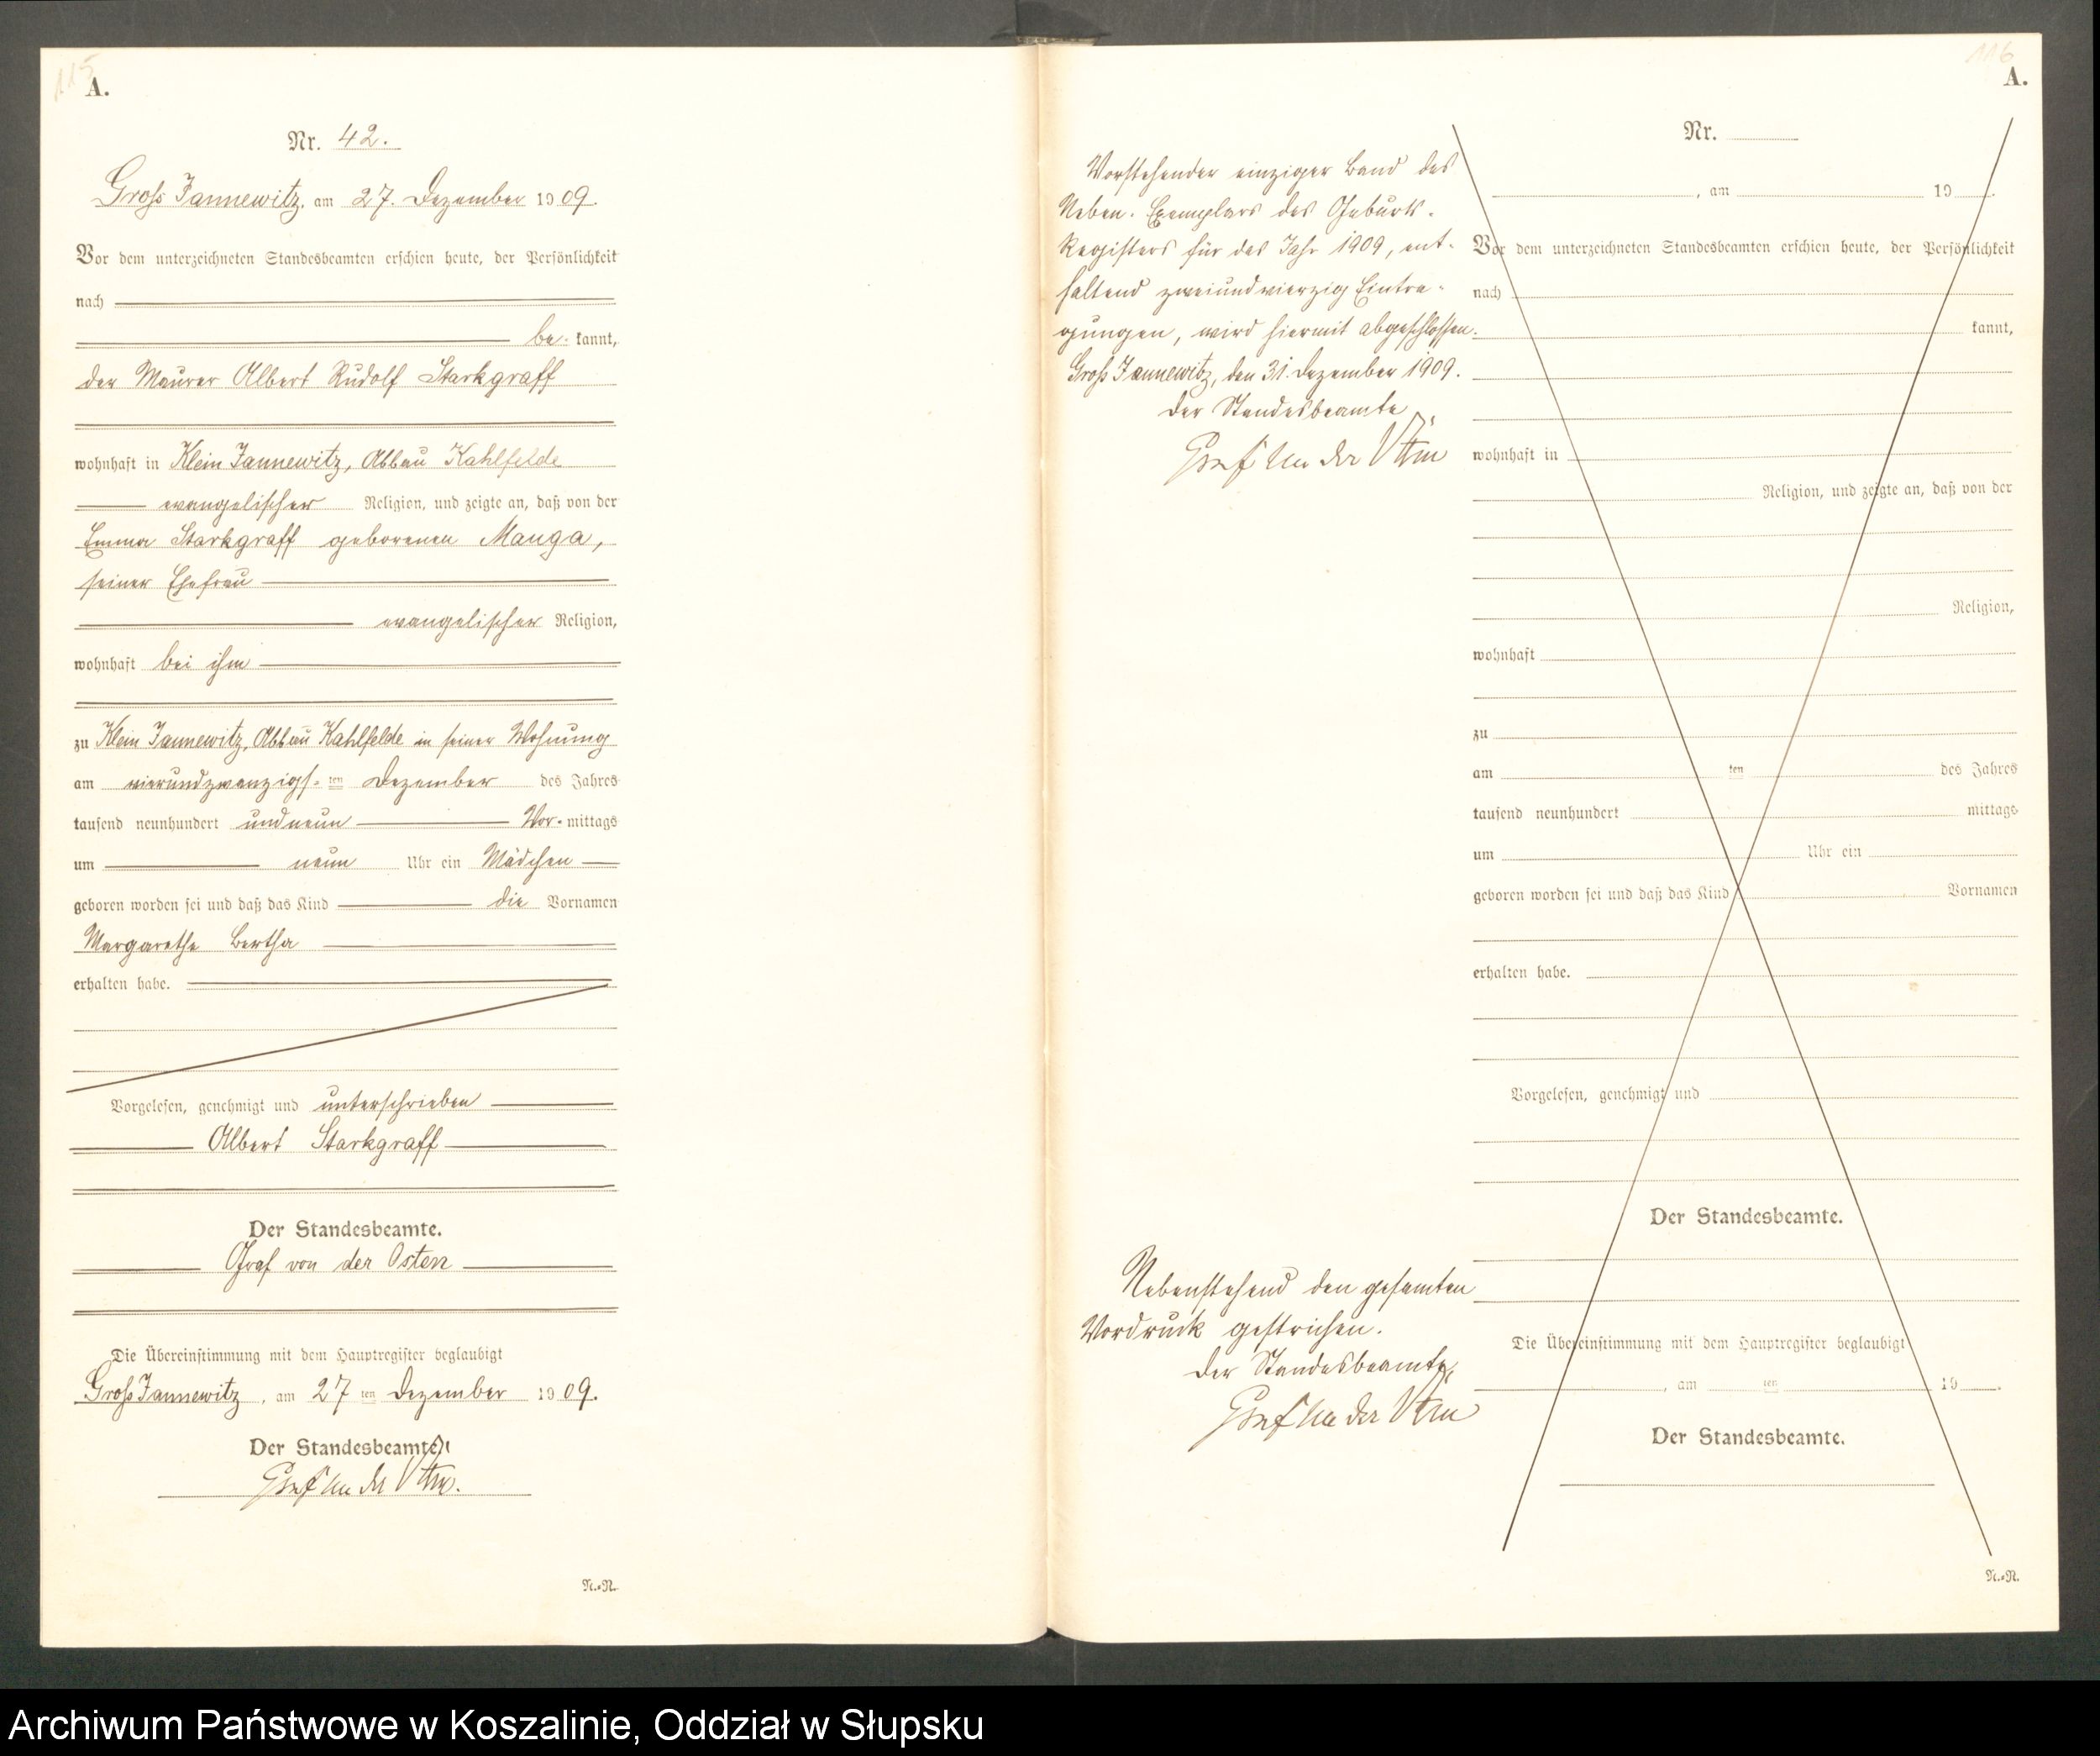 115
A.
Nr. 42.
Gross Jannewitz, am 27. Dezember 1909.
Vor dem unterzeichneten Standesbeamten erschien heute, der Persönlichkeit
nach
be- kannt,
der Maurer Albert Rudolf Starkgraff
wohnhaft in Klein Jannewitz, Abbau Kahlfelde
evangelischer Religion, und zeigte an, daß von der
Emma Starkgraff geborenen Manga,
seiner Ehefrau
evangelischer Religion,
wohnhaft bei ihm
zu Klein Jannewitz, Abbau Kahlfelde in seiner Wohnung
am vierundzwanzigs- ten Dezember des Jahres
tausend neunhundert undneun Vor- mittags
um neun Uhr ein Mädchen
geboren worden sei und daß das Kind die Vornamen
Margarethe Bertha
erhalten habe.
Vorgelesen, genehmigt und unterschrieben
Albert Starkgraff
Der Standesbeamte.
Graf von der Osten
Die Übereinstimmung mit dem Hauptregister beglaubigt
Gross Jannewitz, am 27 ten Dezember 1909.
Der Standesbeamte.
Graf von der Osten.
N.=N.
116
A.
Vorstehender einziger Band des
Neben-Exemplars des Geburts-
Registers für das Jahr 1909, ent-
haltend zweiundvierzig Eintra-
gungen, wird hiermit abgeschlossen.
Gross Jannewitz, den 31. Dezember 1909.
Der Standesbeamte
Graf von der Osten
Nebenstehend den gesamten
Vordruck gestrichen.
Der Standesbeamte,
Graf von der Osten
Nr.
, am 19 .
Vor dem unterzeichneten Standesbeamten erschien heute, der Persönlichkeit
nach
kannt,
wohnhaft in
Religion, und zeigte an, daß von der
Religion,
wohnhaft
zu
am ten des Jahres
tausend neunhundert mittags
um Uhr ein
geboren worden sei und daß das Kind Vornamen
erhalten habe.
Vorgelesen, genehmigt und
Der Standesbeamte.
Die Übereinstimmung mit dem Hauptregister beglaubigt
, am ten 19 .
Der Standesbeamte.
N.=N.
Archiwum Państwowe w Koszalinie, Oddział w Słupsku